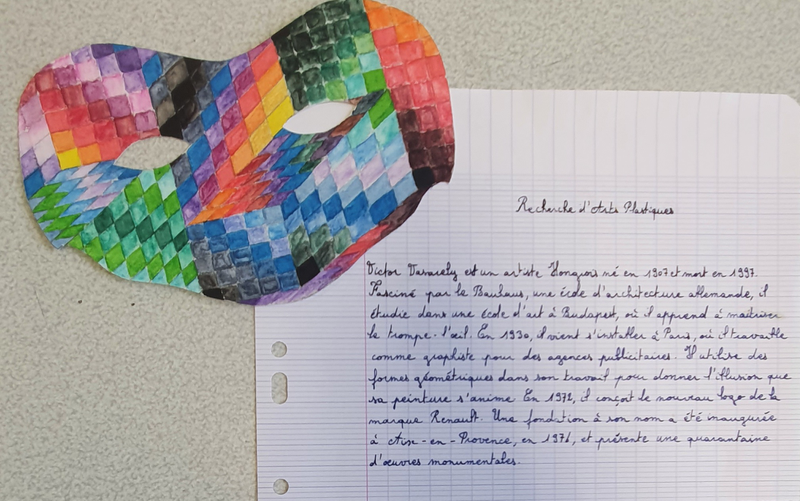 Recherche d'Arts Plastiques
Victor Vasarely est un artiste Hongrois né en 1907 et mort en 1997.
Fasciné par le Bauhaus, une école d'architecture allemande, il
étudie dans une école d'art à Budapest, où il apprend à maîtriser
le trompe-l'œil. En 1930, il vient s'installer à Paris, où il travaille
comme graphiste pour des agences publicitaires. Il utilise des
formes géométriques dans son travail pour donner l'illusion que
sa peinture s'anime. En 1972, il conçoit le nouveau logo de la
marque Renault. Une fondation à son nom a été inaugurée
à Aix-en-Provence, en 1976, et présente une quarantaine
d'œuvres monumentales.